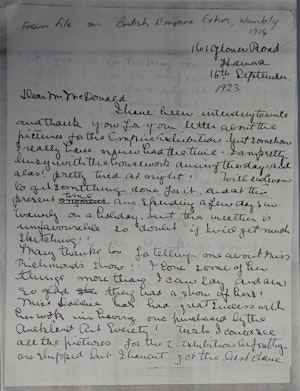 From file on British Empire Exhn, Wembly
1924
161 Glover Road
Hawera
16th September.
1923
Dear Mr McDonald
I have been intending to write
and thank you for your letter about the
pictures for the Empire Exhibition: but somehow
I really have never had the time. I am pretty
busy with the housework during the day and
alas! pretty tired at night! Will endeavour
to get something done for it, and at the
present time am spending a few days in
on a holiday. but the weather is
unfavourable so doubt if I will get much
sketching!
Many thanks too for telling me about Miss
Richmonds Show! I love some of her
things more than I can say and am
so glad they had a show of hers!
Miss has had great success with
her work in having one purchased by the
Auckland Art Society! Wish I could see
all the pictures for the Exhibition before they
are shipped but I havent got the last